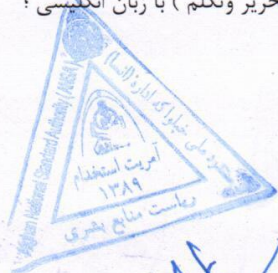 حریر وتکلم ) با زبان انگلیسی ؛
Afghan National Standard Authority (ANSA)
آمریت استخدام
۱۳۸۹
ریاست منابع بشری